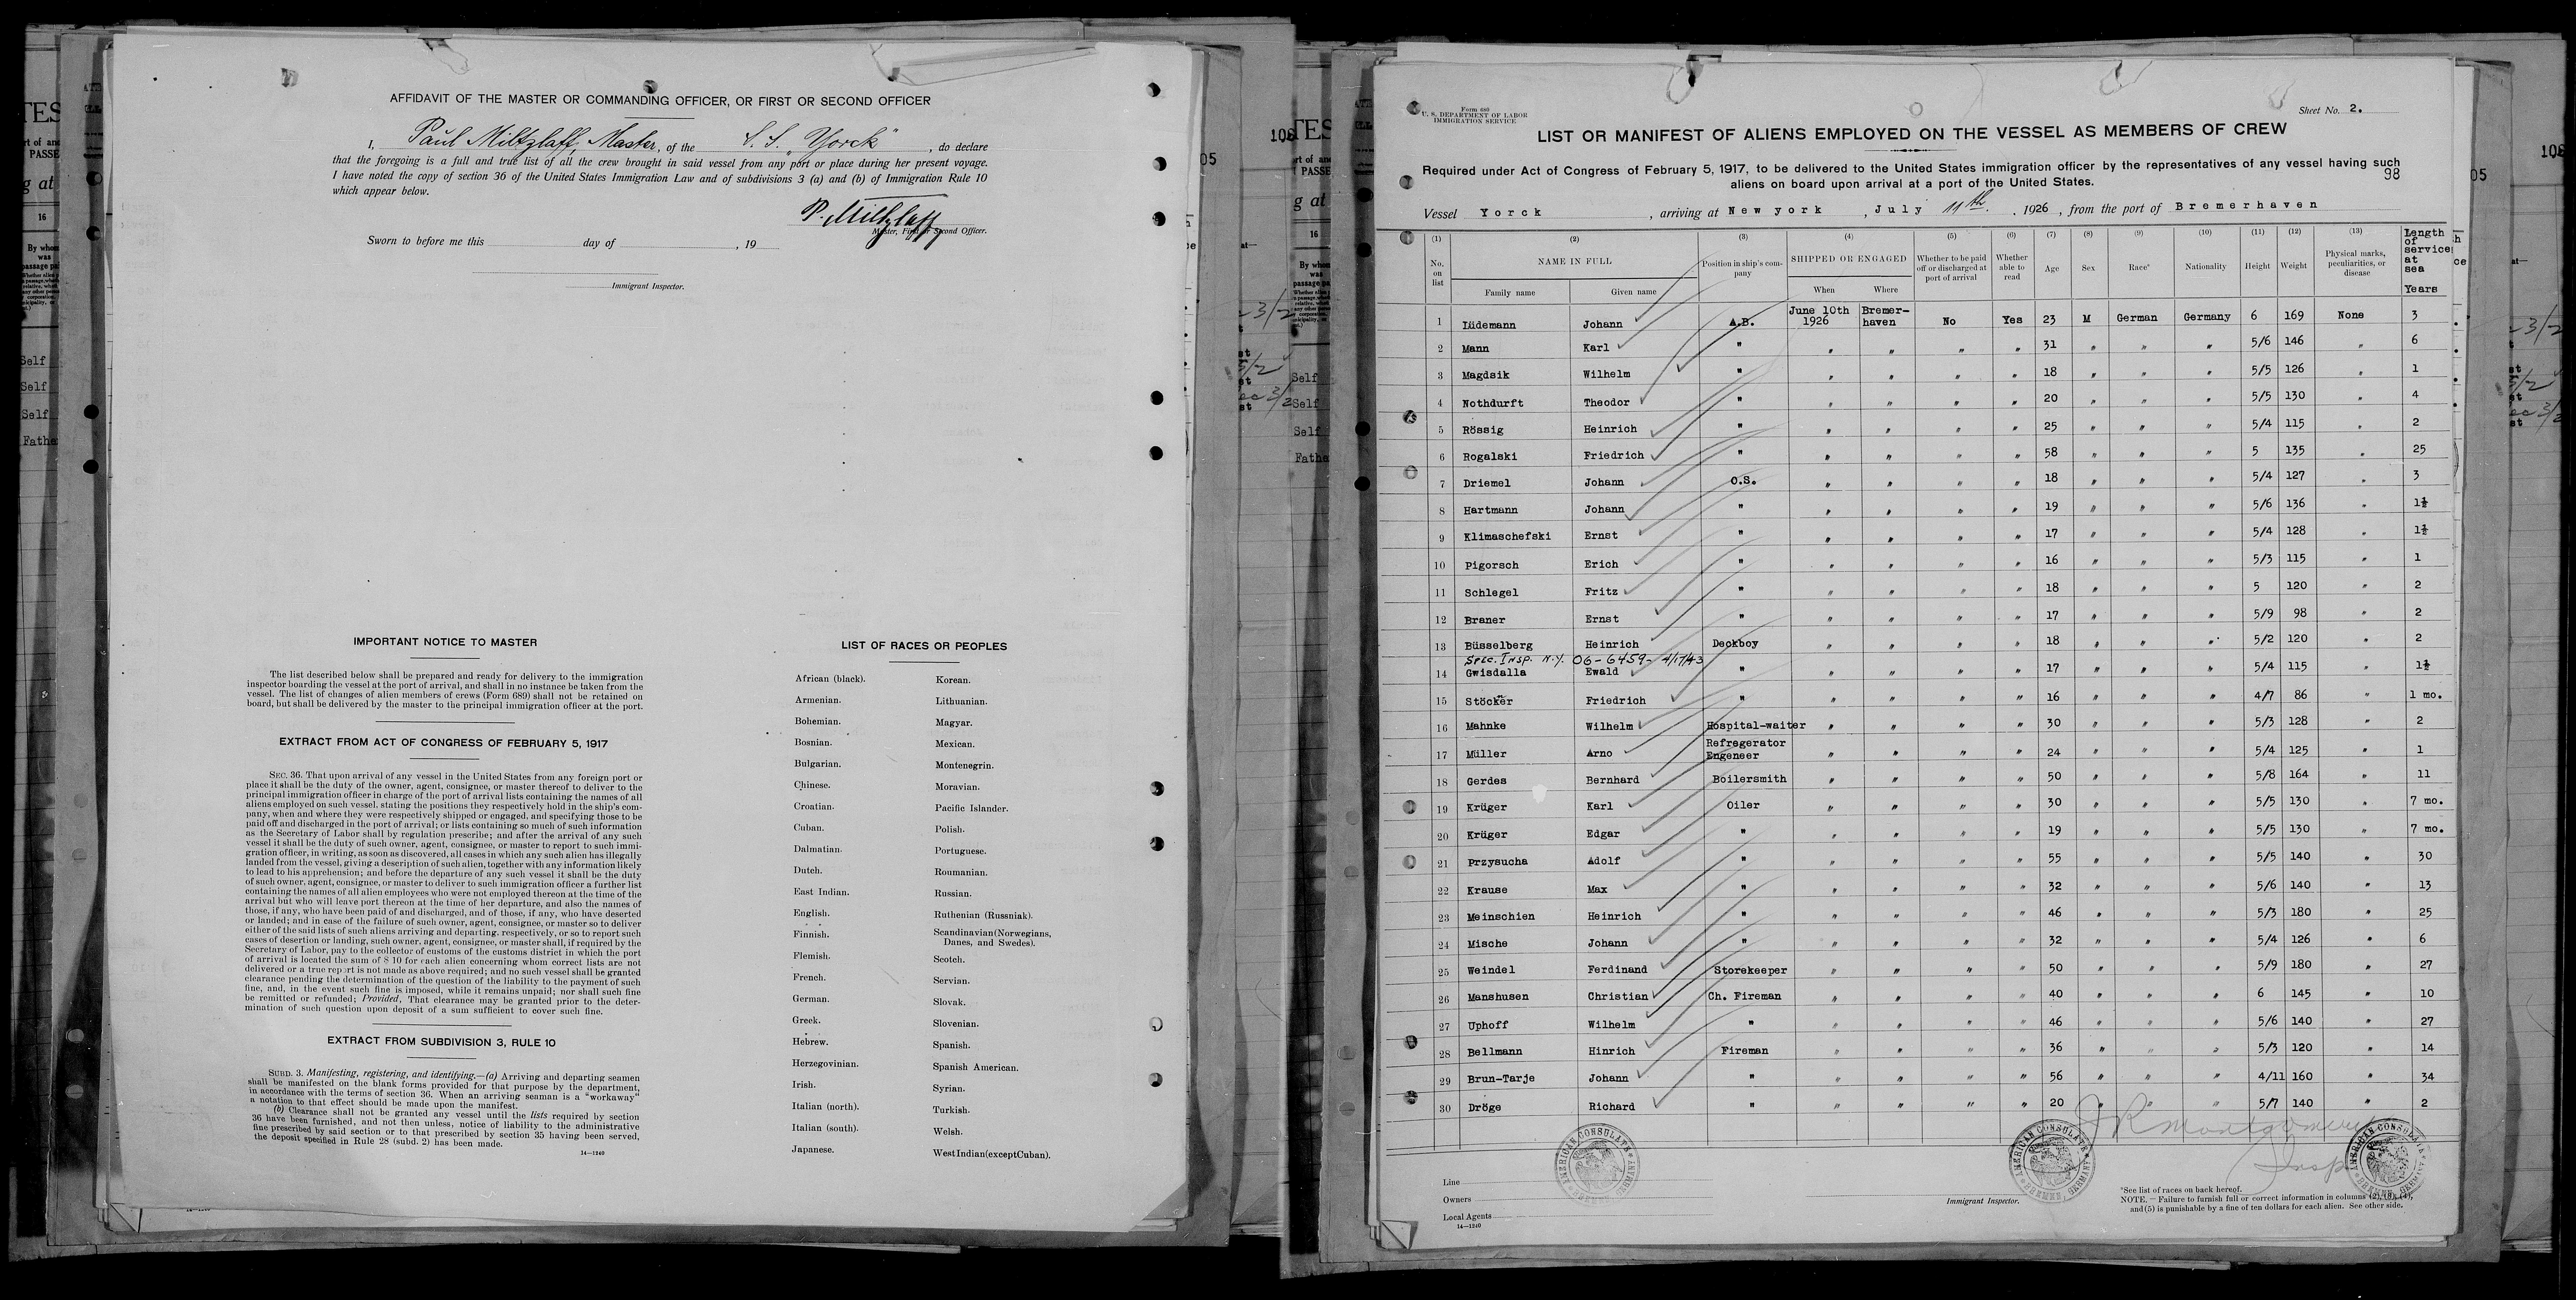 AFFIDAVIT OF THE MASTER OR COMMANDING OFFICER, OR FIRST OR SECOND OFFICER
I, Paul Miltzlaff, Master, of the S. S. „Yorck", do declare
that the foregoing is a full and true list of all the crew brought in said vessel from any port or place during her present voyage.
I have noted the copy of section 36 of the United States Immigration Law and of subdivisions 3 (a) and (b) of Immigration Rule 10
which appear below.
P. Miltzlaff
Master, First or Second Officer.
Sworn to before me this day of , 19
Immigrant Inspector.
IMPORTANT NOTICE TO MASTER
The list described below shall be prepared and ready for delivery to the immigration
inspector boarding the vessel at the port of arrival, and shall in no instance be taken from the
vessel. The list of changes of alien members of crews (Form 689) shall not be retained on
board, but shall be delivered by the master to the principal immigration officer at the port.
EXTRACT FROM ACT OF CONGRESS OF FEBRUARY 5, 1917
SEC. 36. That upon arrival of any vessel in the United States from any foreign port or
place it shall be the duty of the owner, agent, consignee, or master thereof to deliver to the
principal immigration officer in charge of the port of arrival lists containing the names of all
aliens employed on such vessel, stating the positions they respectively hold in the ship's com-
pany, when and where they were respectively shipped or engaged, and specifying those to be
paid off and discharged in the port of arrival; or lists containing so much of such information
as the Secretary of Labor shall by regulation prescribe; and after the arrival of any such
vessel it shall be the duty of such owner, agent, consignee, or master to report to such immi-
gration officer, in writing, as soon as discovered, all cases in which any such alien has illegally
landed from the vessel, giving a description of such alien, together with any information likely
to lead to his apprehension; and before the departure of any such vessel it shall be the duty
of such owner, agent, consignee, or master to deliver to such immigration officer a further list
containing the names of all alien employees who were not employed thereon at the time of the
arrival but who will leave port thereon at the time of her departure, and also the names of
those, if any, who have been paid of and discharged, and of those, if any, who have deserted
or landed; and in case of the failure of such owner, agent, consignee, or master so to deliver
either of the said lists of such aliens arriving and departing, respectively, or so to report such
cases of desertion or landing, such owner, agent, consignee, or master shall, if required by the
Secretary of Labor, pay to the collector of customs of the customs district in which the port
of arrival is located the sum of $ 10 for each alien concerning whom correct lists are not
delivered or a true report is not made as above required; and no such vessel shall be granted
clearance pending the determination of the question of the liability to the payment of such
fine, and, in the event such fine is imposed, while it remains unpaid; nor shall such fine
be remitted or refunded; Provided, That clearance may be granted prior to the deter-
mination of such question upon deposit of a sum sufficient to cover such fine.
EXTRACT FROM SUBDIVISION 3, RULE 10
SUBD. 3. Manifesting, registering, and identifying.—(a) Arriving and departing seamen
shall be manifested on the blank forms provided for that purpose by the department,
in accordance with the terms of section 36. When an arriving seaman is a "workaway"
a notation to that effect should be made upon the manifest.
(b) Clearance shall not be granted any vessel until the lists required by section
36 have been furnished, and not then unless, notice of liability to the administrative
fine prescribed by said section or to that prescribed by section 35 having been served,
the deposit specified in Rule 28 (subd. 2) has been made.
14—1240
LIST OF RACES OR PEOPLES
African (black).
Armenian.
Bohemian.
Bosnian.
Bulgarian.
Chinese.
Croatian.
Cuban.
Dalmatian.
Dutch.
East Indian.
English.
Finnish.
Flemish.
French.
German.
Greek.
Hebrew.
Herzegovinian.
Irish.
Italian (north).
Italian (south).
Japanese.
Korean.
Lithuanian.
Magyar.
Mexican.
Montenegrin.
Moravian.
Pacific Islander.
Polish.
Portuguese.
Roumanian.
Russian.
Ruthenian (Russniak).
Scandinavian (Norwegians,
Danes, and Swedes).
Scotch.
Servian.
Slovak.
Slovenian.
Spanish.
Spanish American.
Syrian.
Turkish.
Welsh.
West Indian (except Cuban).
Form 680
U. S. DEPARTMENT OF LABOR
IMMIGRATION SERVICE
Sheet No. 2.
LIST OR MANIFEST OF ALIENS EMPLOYED ON THE VESSEL AS MEMBERS OF CREW
Required under Act of Congress of February 5, 1917, to be delivered to the United States immigration officer by the representatives of any vessel having such
aliens on board upon arrival at a port of the United States.
98
Vessel Yorck , arriving at New york , July 11th. , 1926 , from the port of Bremerhaven
(1) (2) (3) (4) (5) (6) (7) (8) (9) (10) (11) (12) (13)
No. on list
NAME IN FULL
Family name Given name
Position in ship's company
SHIPPED OR ENGAGED
When Where
Whether to be paid off or discharged at port of arrival
Whether able to read
Age
Sex
Race*
Nationality
Height
Weight
Physical marks, peculiarities, or disease
Length of service at sea Years
1 Lüdemann Johann A.B. June 10th 1926 Bremer-haven No Yes 23 M German Germany 6 169 None 3
2 Mann Karl " " " " " 31 " " " 5/6 146 " 6
3 Magdsik Wilhelm " " " " " 18 " " " 5/5 126 " 1
4 Nothdurft Theodor " " " " " 20 " " " 5/5 130 " 4
5 Rössig Heinrich " " " " " 25 " " " 5/4 115 " 2
6 Rogalski Friedrich " " " " " 58 " " " 5 135 " 25
7 Driemel Johann O.S. " " " " 18 " " " 5/4 127 " 3
8 Hartmann Johann " " " " " 19 " " " 5/6 136 " 1½
9 Klimaschefski Ernst " " " " " 17 " " " 5/4 128 " 1½
10 Pigorsch Erich " " " " " 16 " " " 5/3 115 " 1
11 Schlegel Fritz " " " " " 18 " " " 5 120 " 2
12 Braner Ernst " " " " " 17 " " " 5/9 98 " 2
13 Büsselberg Heinrich Deckboy " " " " 18 " " " 5/2 120 " 2
Spec. Insp. N.Y. 06-6459- 4/17/43
14 Gwisdalla Ewald " " " " " 17 " " " 5/4 115 " 1½
15 Stöcker Friedrich " " " " " 16 " " " 4/7 86 " 1 mo.
16 Mahnke Wilhelm Hospital-waiter " " " " 30 " " " 5/3 128 " 2
17 Müller Arno Refregerator Engeneer " " " " 24 " " " 5/4 125 " 1
18 Gerdes Bernhard Boilersmith " " " " 50 " " " 5/8 164 " 11
19 Krüger Karl Oiler " " " " 30 " " " 5/5 130 " 7 mo.
20 Krüger Edgar " " " " " 19 " " " 5/5 130 " 7 mo.
21 Przysucha Adolf " " " " " 55 " " " 5/5 140 " 30
22 Krause Max " " " " " 32 " " " 5/6 140 " 13
23 Meinschien Heinrich " " " " " 46 " " " 5/3 180 " 25
24 Mische Johann " " " " " 32 " " " 5/4 126 " 6
25 Weindel Ferdinand Storekeeper " " " " 50 " " " 5/9 180 " 27
26 Manshusen Christian Ch. Fireman " " " " 40 " " " 6 145 " 10
27 Uphoff Wilhelm " " " " " 46 " " " 5/6 140 " 27
28 Bellmann Hinrich Fireman " " " " 36 " " " 5/3 120 " 14
29 Brun-Tarje Johann " " " " " 56 " " " 4/11 160 " 34
30 Dröge Richard " " " " " 20 " " " 5/7 140 " 2
JR Montgomery
Insp
AMERICAN CONSULATE BREMEN, GERMANY
AMERICAN CONSULATE BREMEN, GERMANY
AMERICAN CONSULATE BREMEN, GERMANY
Line
Owners
Local Agents
14—1240
Immigrant Inspector.
*See list of races on back hereof.
NOTE. — Failure to furnish full or correct information in columns (2), (3), (4),
and (5) is punishable by a fine of ten dollars for each alien. See other side.